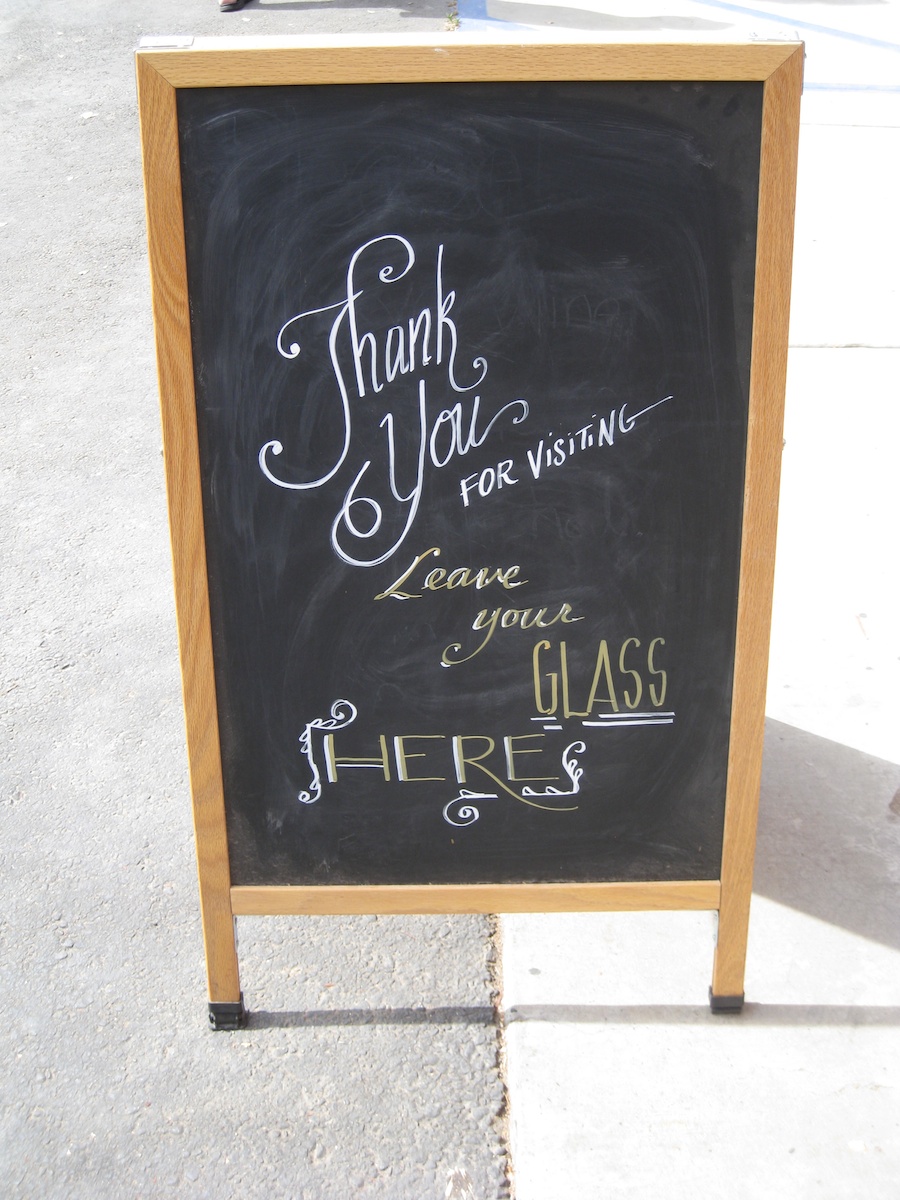 Thank
You
FOR VISITING
Leave
your
GLASS
HERE